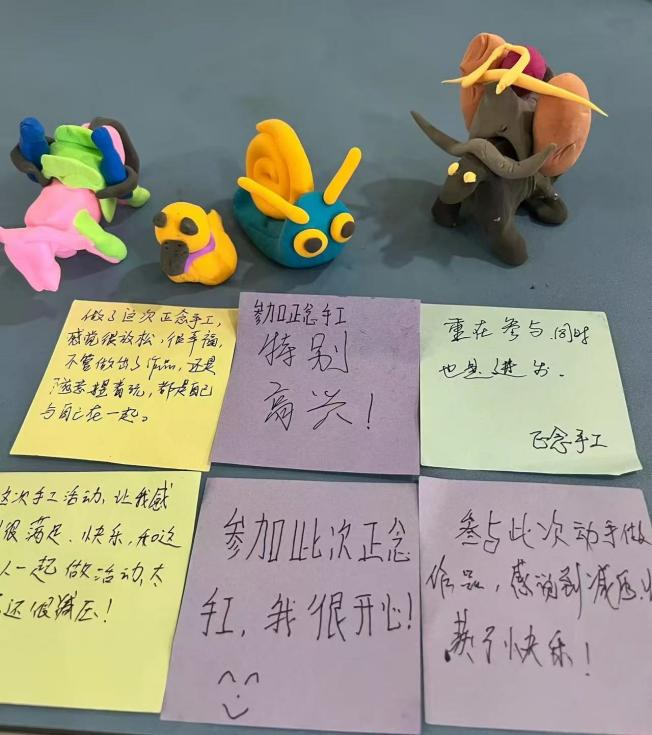 做了这次正念手工,
感觉很放松,很幸福,
不管做出了作品,还是
随意捏着玩,都是自己
与自己在一起。
参加正念手工
特别
高兴!
重在参与,同时
也是进步.
正念手工
这次手工活动,让我感
很满足、快乐,和这
人一起做活动,太
还很减压!
参加此次正念
手工,我很开心!
参与此次动手做
作品,感到减压,
获了快乐!